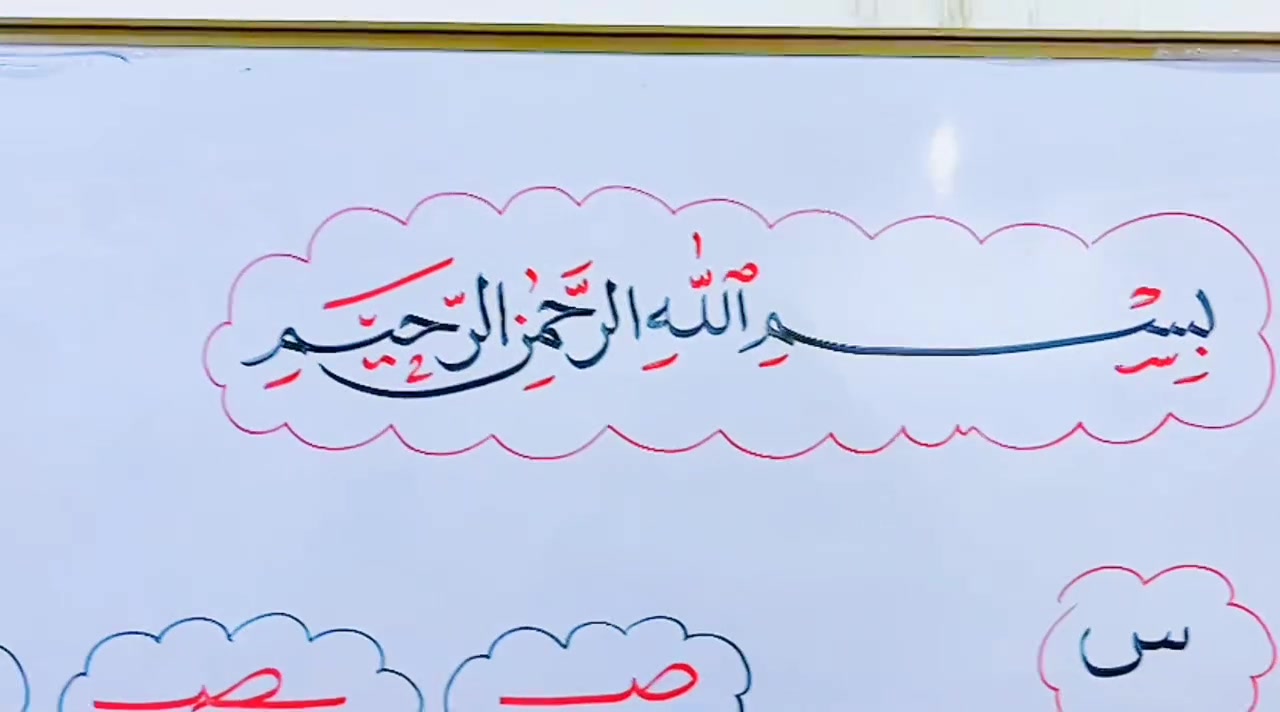 بِسْمِ ٱللَّٰهِ الرَّحْمٰنِ الرَّحِيمِ
س
صـ
ـصـ